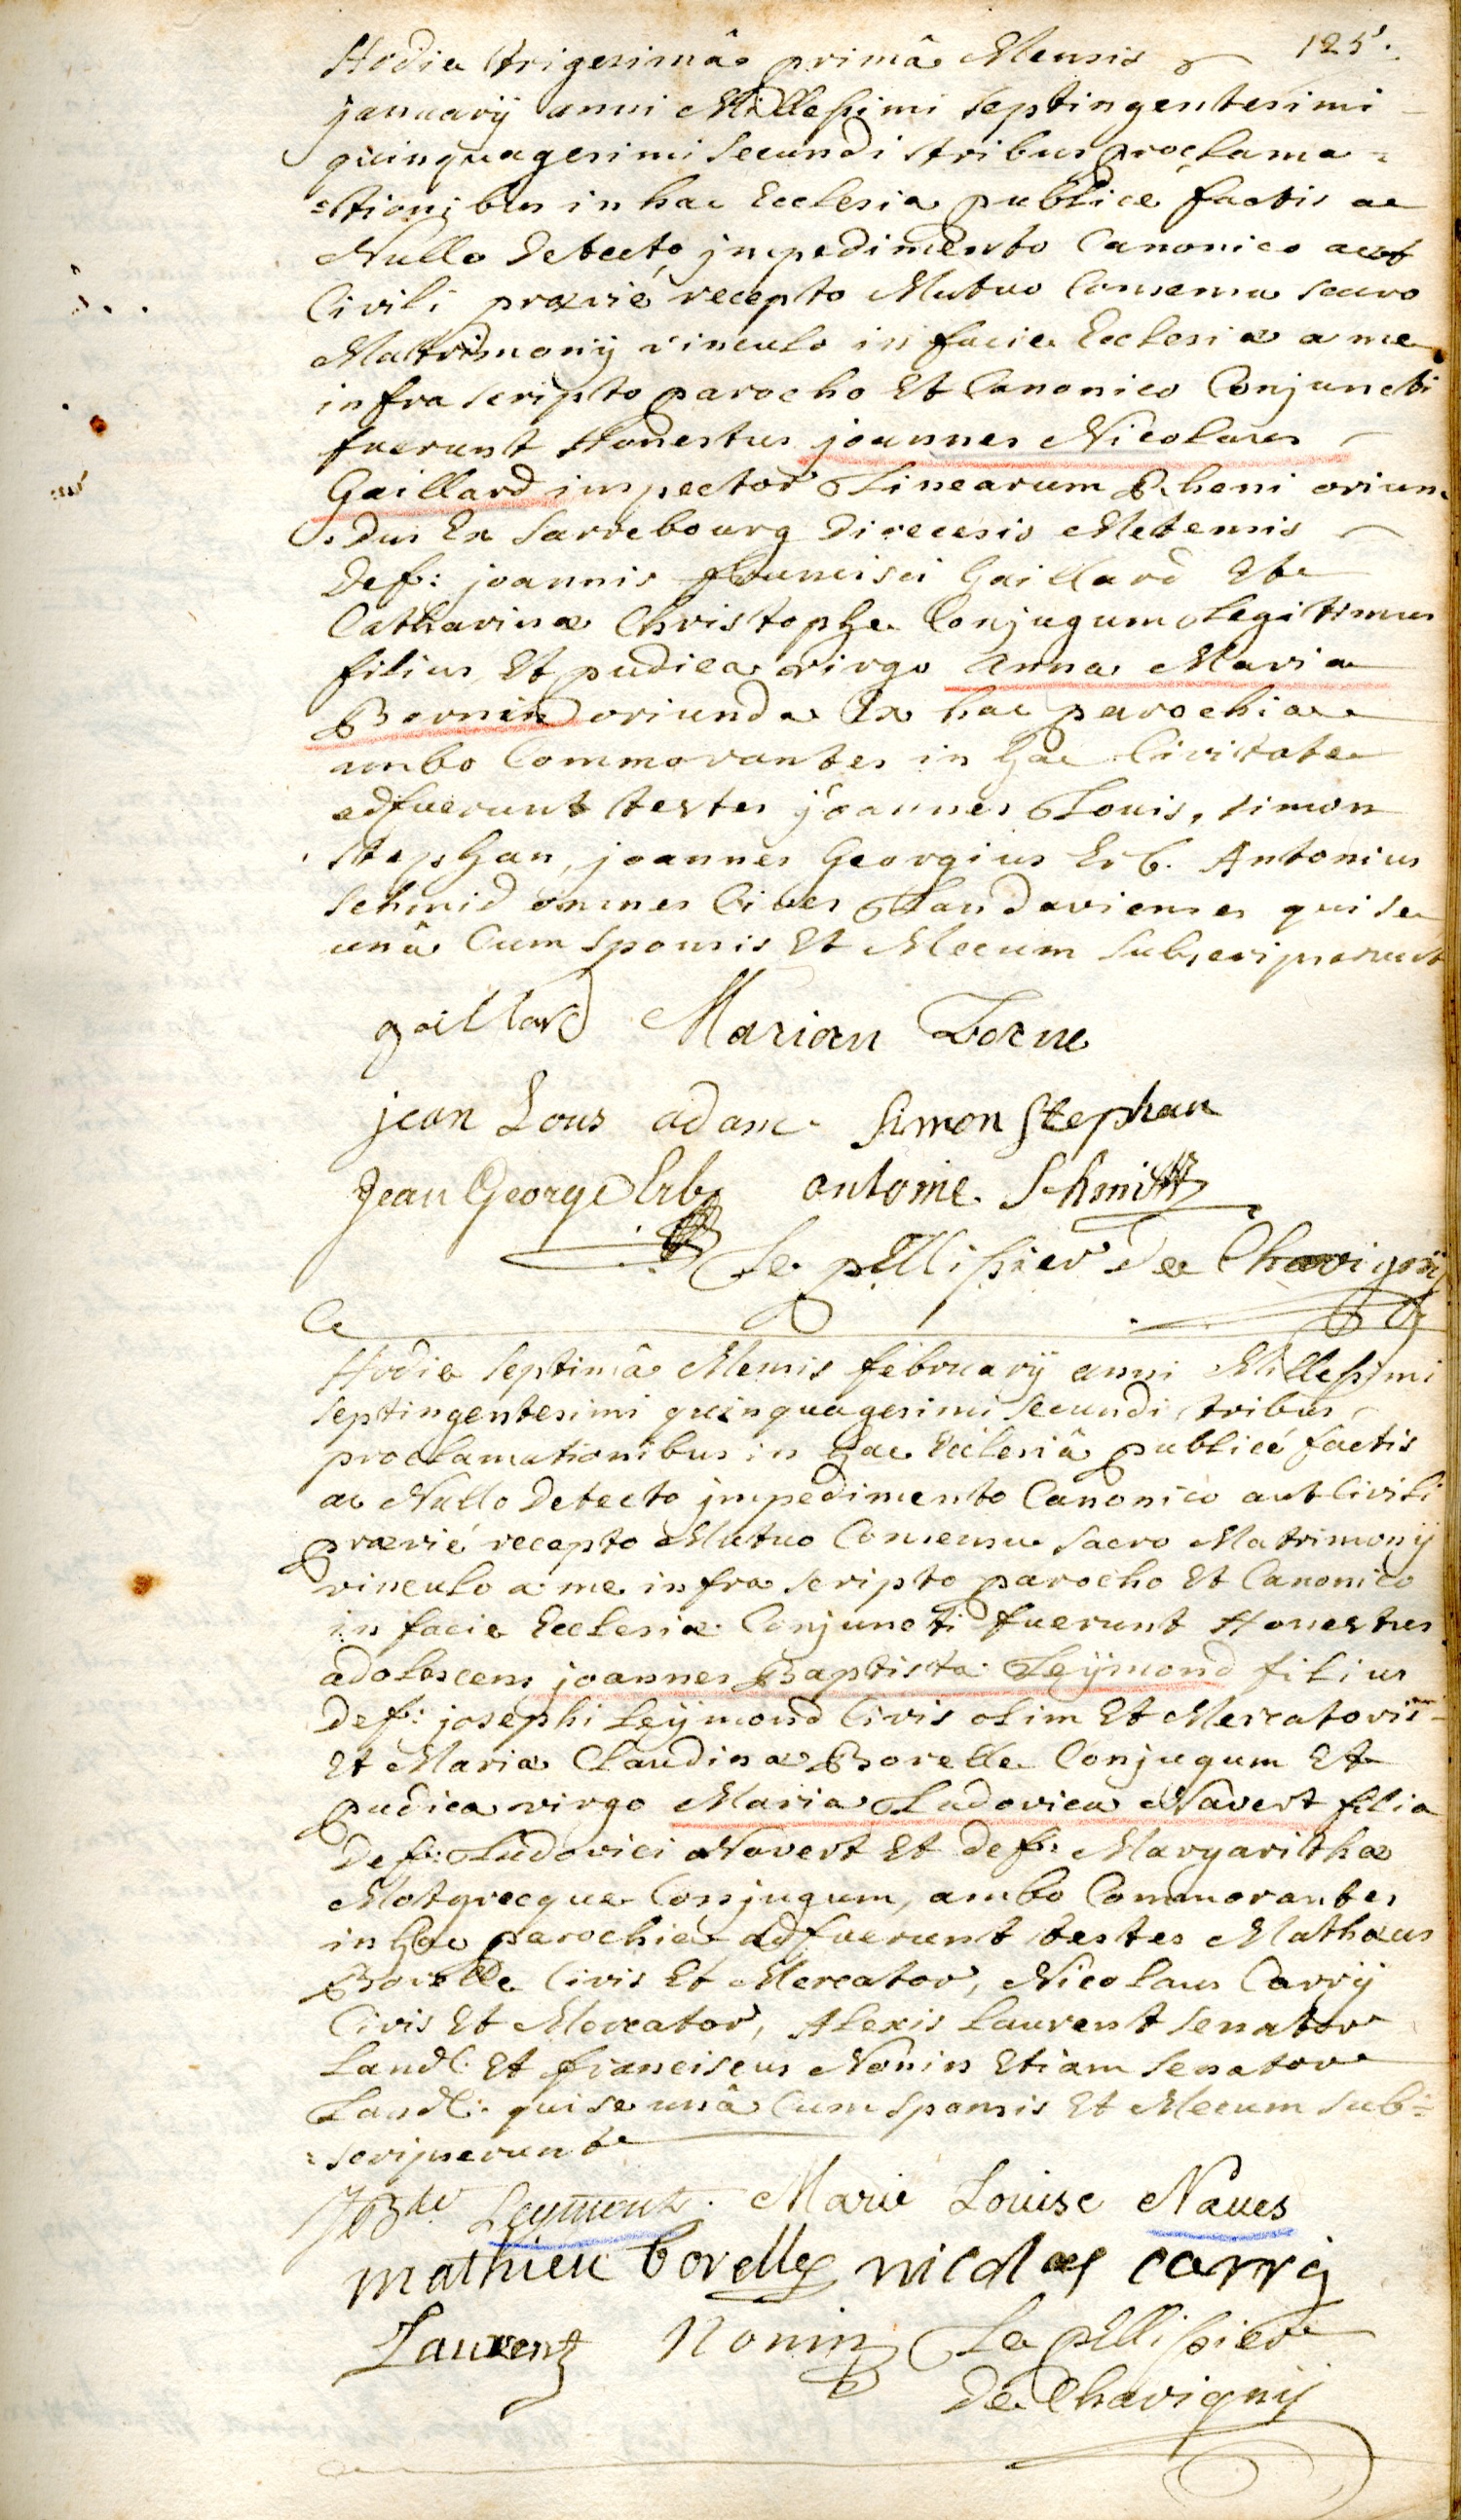 125.
Hodie trigesimâ primâ Mensis
januarij anni Millesimi septingentesimi
quinquagesimi secundi tribus proclama=
=tionibus in hac Ecclesia publicè factis ac
Nullo detecto jmpedimento Canonico aut
Civili prævié recepto Mutuo Consensu sacro
Matrimonij vinculo in facie Ecclesiæ a me
infra scripto parocho Et Canonico Conjuncti
fuerunt Honestus joannes Nicolaus
Gaillard inspector Linearum Rheni oriun
dus Ex Sarrebourg Diœcesis Metensis
Def: joannis francisci Gaillard Et
Catharinæ Christophe Conjugum Legitimus
filius Et pudica virgo Anna Maria
Bornin oriunda Ex hac parochia
ambo Commorantes in hac Civitate
adfuerunt testes joannes Louis, simon
Stephan, joannes Georgius Erb. Antonius
Schmid omnes Cives Landavienses qui se
unâ Cum sponsis Et Mecum subscripserunt
gaillard Marian Borne
jean Lous adam simon stephan
Jean George Erb antoine Schmitt
Le pellissier De Chavignij
Hodie septimâ Mensis februarij anni Millesimi
septingentesimi quinquagesimi secundi tribus
proclamationibus in hac Ecclesiâ publicé factis
ac Nullo Detecto jmpedimento Canonico aut Civili
prævié recepto Mutuo Consensu sacro Matrimonij
vinculo a me infra scripto parocho Et Canonico
in facie Ecclesiæ Conjuncti fuerunt Honestus
adolescens joannes Baptista Leijmond filius
Def: josephi Leijmond Civis olim Et Mercatoris
Et Mariæ Claudinæ Borelle Conjugum Et
pudica virgo Maria Ludovica Navert filia
Def: Ludovici Navert Et def: Margarithæ
Motgrecque Conjugum, ambo Commorantes
in hac parochiâ adfuerunt testes Mathæus
Borelle Civis Et Mercator, Nicolaus Carrij
Civis Et Mercator, Alexis Laurent senator
Land: Et franciscus Nonin Etiam senator
Land: qui se unâ Cum sponsis Et Mecum sub=
=scripserunt
Leymont. Marie Louise Naues
mathieu borelle nicolas carrij
Laurent Nonin Le pellissier
De Chavignij